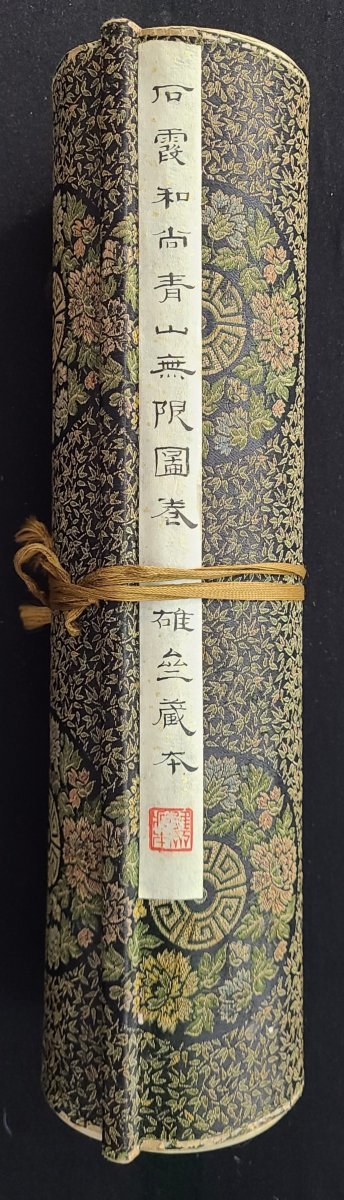 石霞和尚青山無限圖卷 雄亝藏本